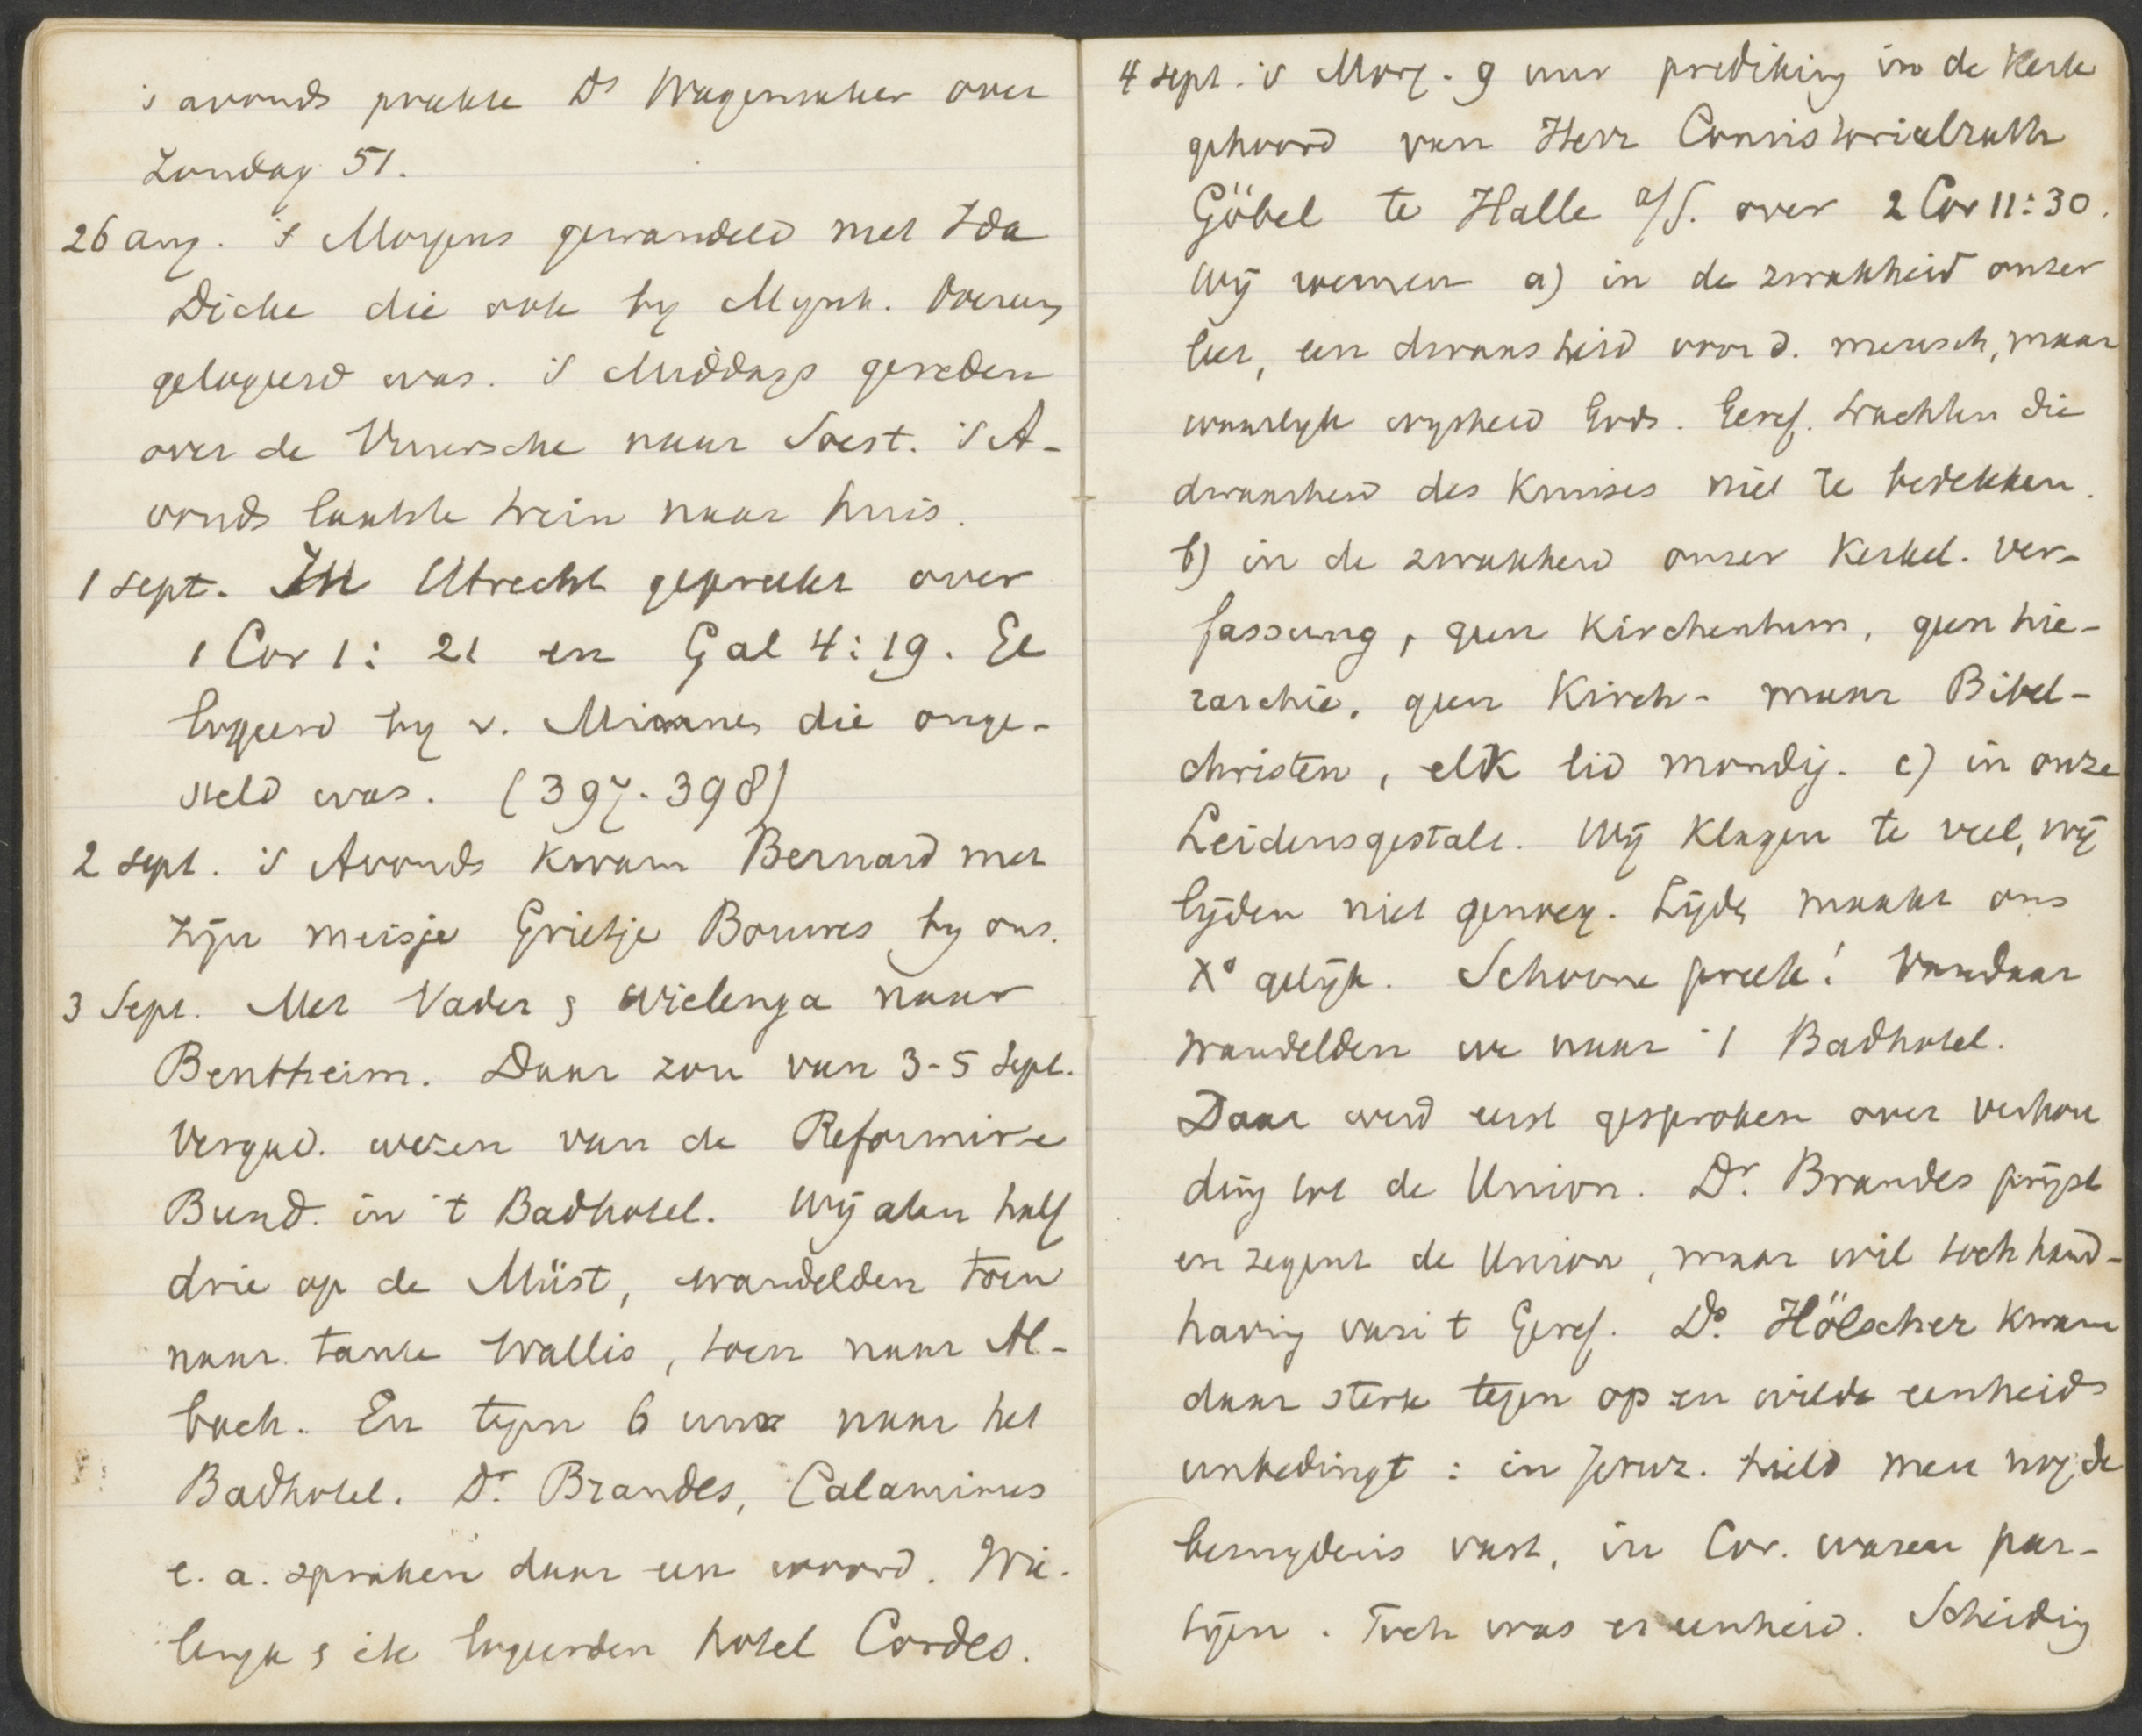 's avonds preekte Ds Wagenmaker over
Zondag 51.
26 aug. 's Morgens gewandeld met Ida
Dicke die ook by Mynh.
gelogeerd was. 's Middags gereden
over de Vuursche naar Soest. 's A-
vonds laatste trein naar huis.
1 sept. In Utrecht gepreekt over
1 Cor 1: 21 en Gal 4:19. Ge
logeerd by v. Minnen die onge-
steld was. (397-398)
2 sept. 's Avonds kwam Bernard met
zijn meisje Grietje Bouwes by ons.
3 Sept. Met Vader & Wielenga naar
Bentheim. Daar zou van 3-5 Sept.
Vergad. wezen van de Reformirte
Bund. in 't Badhotel. Wij aten half
drie op de Müst, wandelden toen
naar tante Wallis, toen naar Al-
bach. En tegen 6 uur naar het
Badhotel. Dr. Brandes, Calaminus
e. a. spraken daar een woord. Wie-
lenga & ik logeerden hotel Cordes.
4 sept. 's Morg. 9 uur prediking in de Kerk
gehoord van Herr Consistorialrath
Göbel te Halle a/S. over 2 Cor 11:30.
Wij roemen a) in de zwakheid onzer
leer, een dwaasheid voor d. mensch, maar
waarlyk wysheid Gods. Geref. trachten die
dwaasheid des Kruises niet te bedekken.
b) in de zwakheid onzer Kerkel. Ver-
fassung, geen Kirchenthum, geen hie-
rarchie, geen Kirch- maar Bibel-
christen, elk lid mondig. c) in onze
Leidensgestalt. Wij Klagen te veel, wij
lijden niet genoeg. Lijden maakt ons
Xo gelijk. Schoone preek! Vandaar
wandelden we naar 't Badhotel.
Daar werd eerst gesproken over verhou
ding tot de Union. Dr. Brandes prijst
en zegent de Union, maar wil toch hand-
having van 't Geref. Ds. Hölscher kwam
daar sterk tegen op en wilde eenheid
unbedingt: in Jeruz. hield men nog de
besnydenis vast, in Cor. waren par-
tijen. Toch was er eenheid. Scheiding